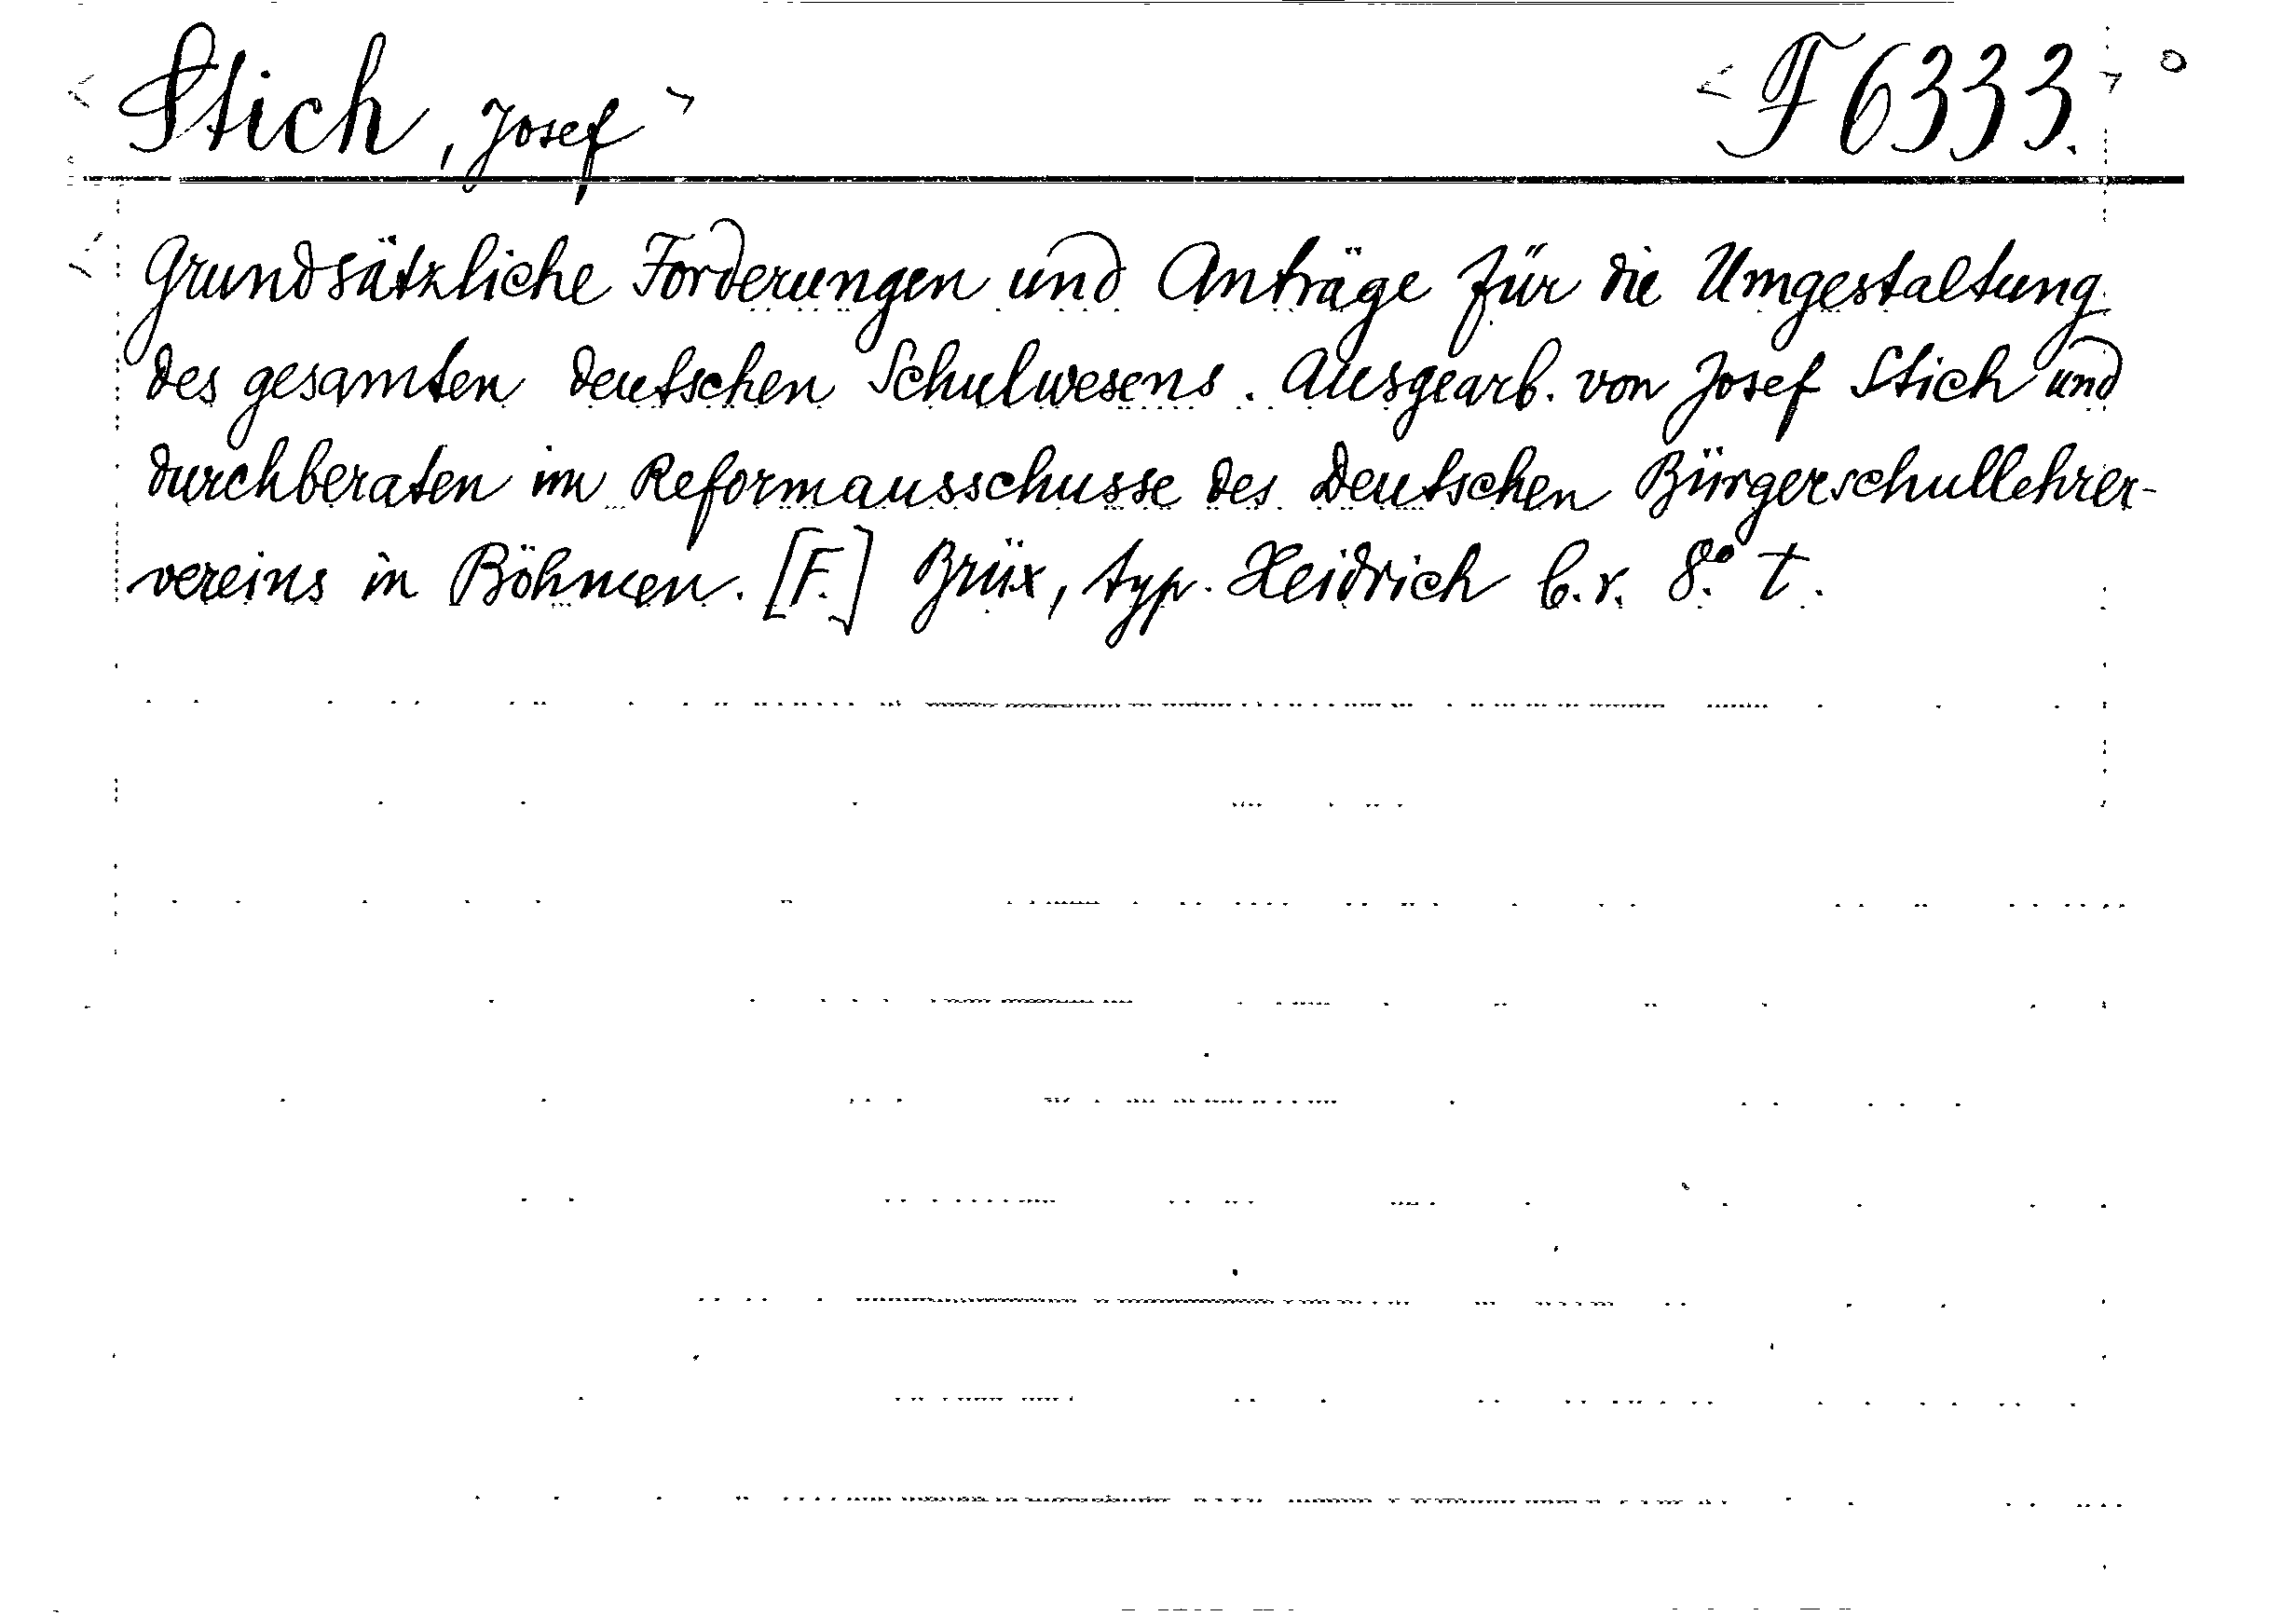 Stich, Josef F 6333.
Grundsätzliche Forderungen und Anträge für die Umgestaltung
des gesamten deutschen Schulwesens. Ausgearb. von Josef Stich und
durchberaten im Reformausschusse des Deutschen Bürgerschullehrer-
vereins in Böhmen. [F.] Brüx, typ. Heidrich b.r. 8.° t.